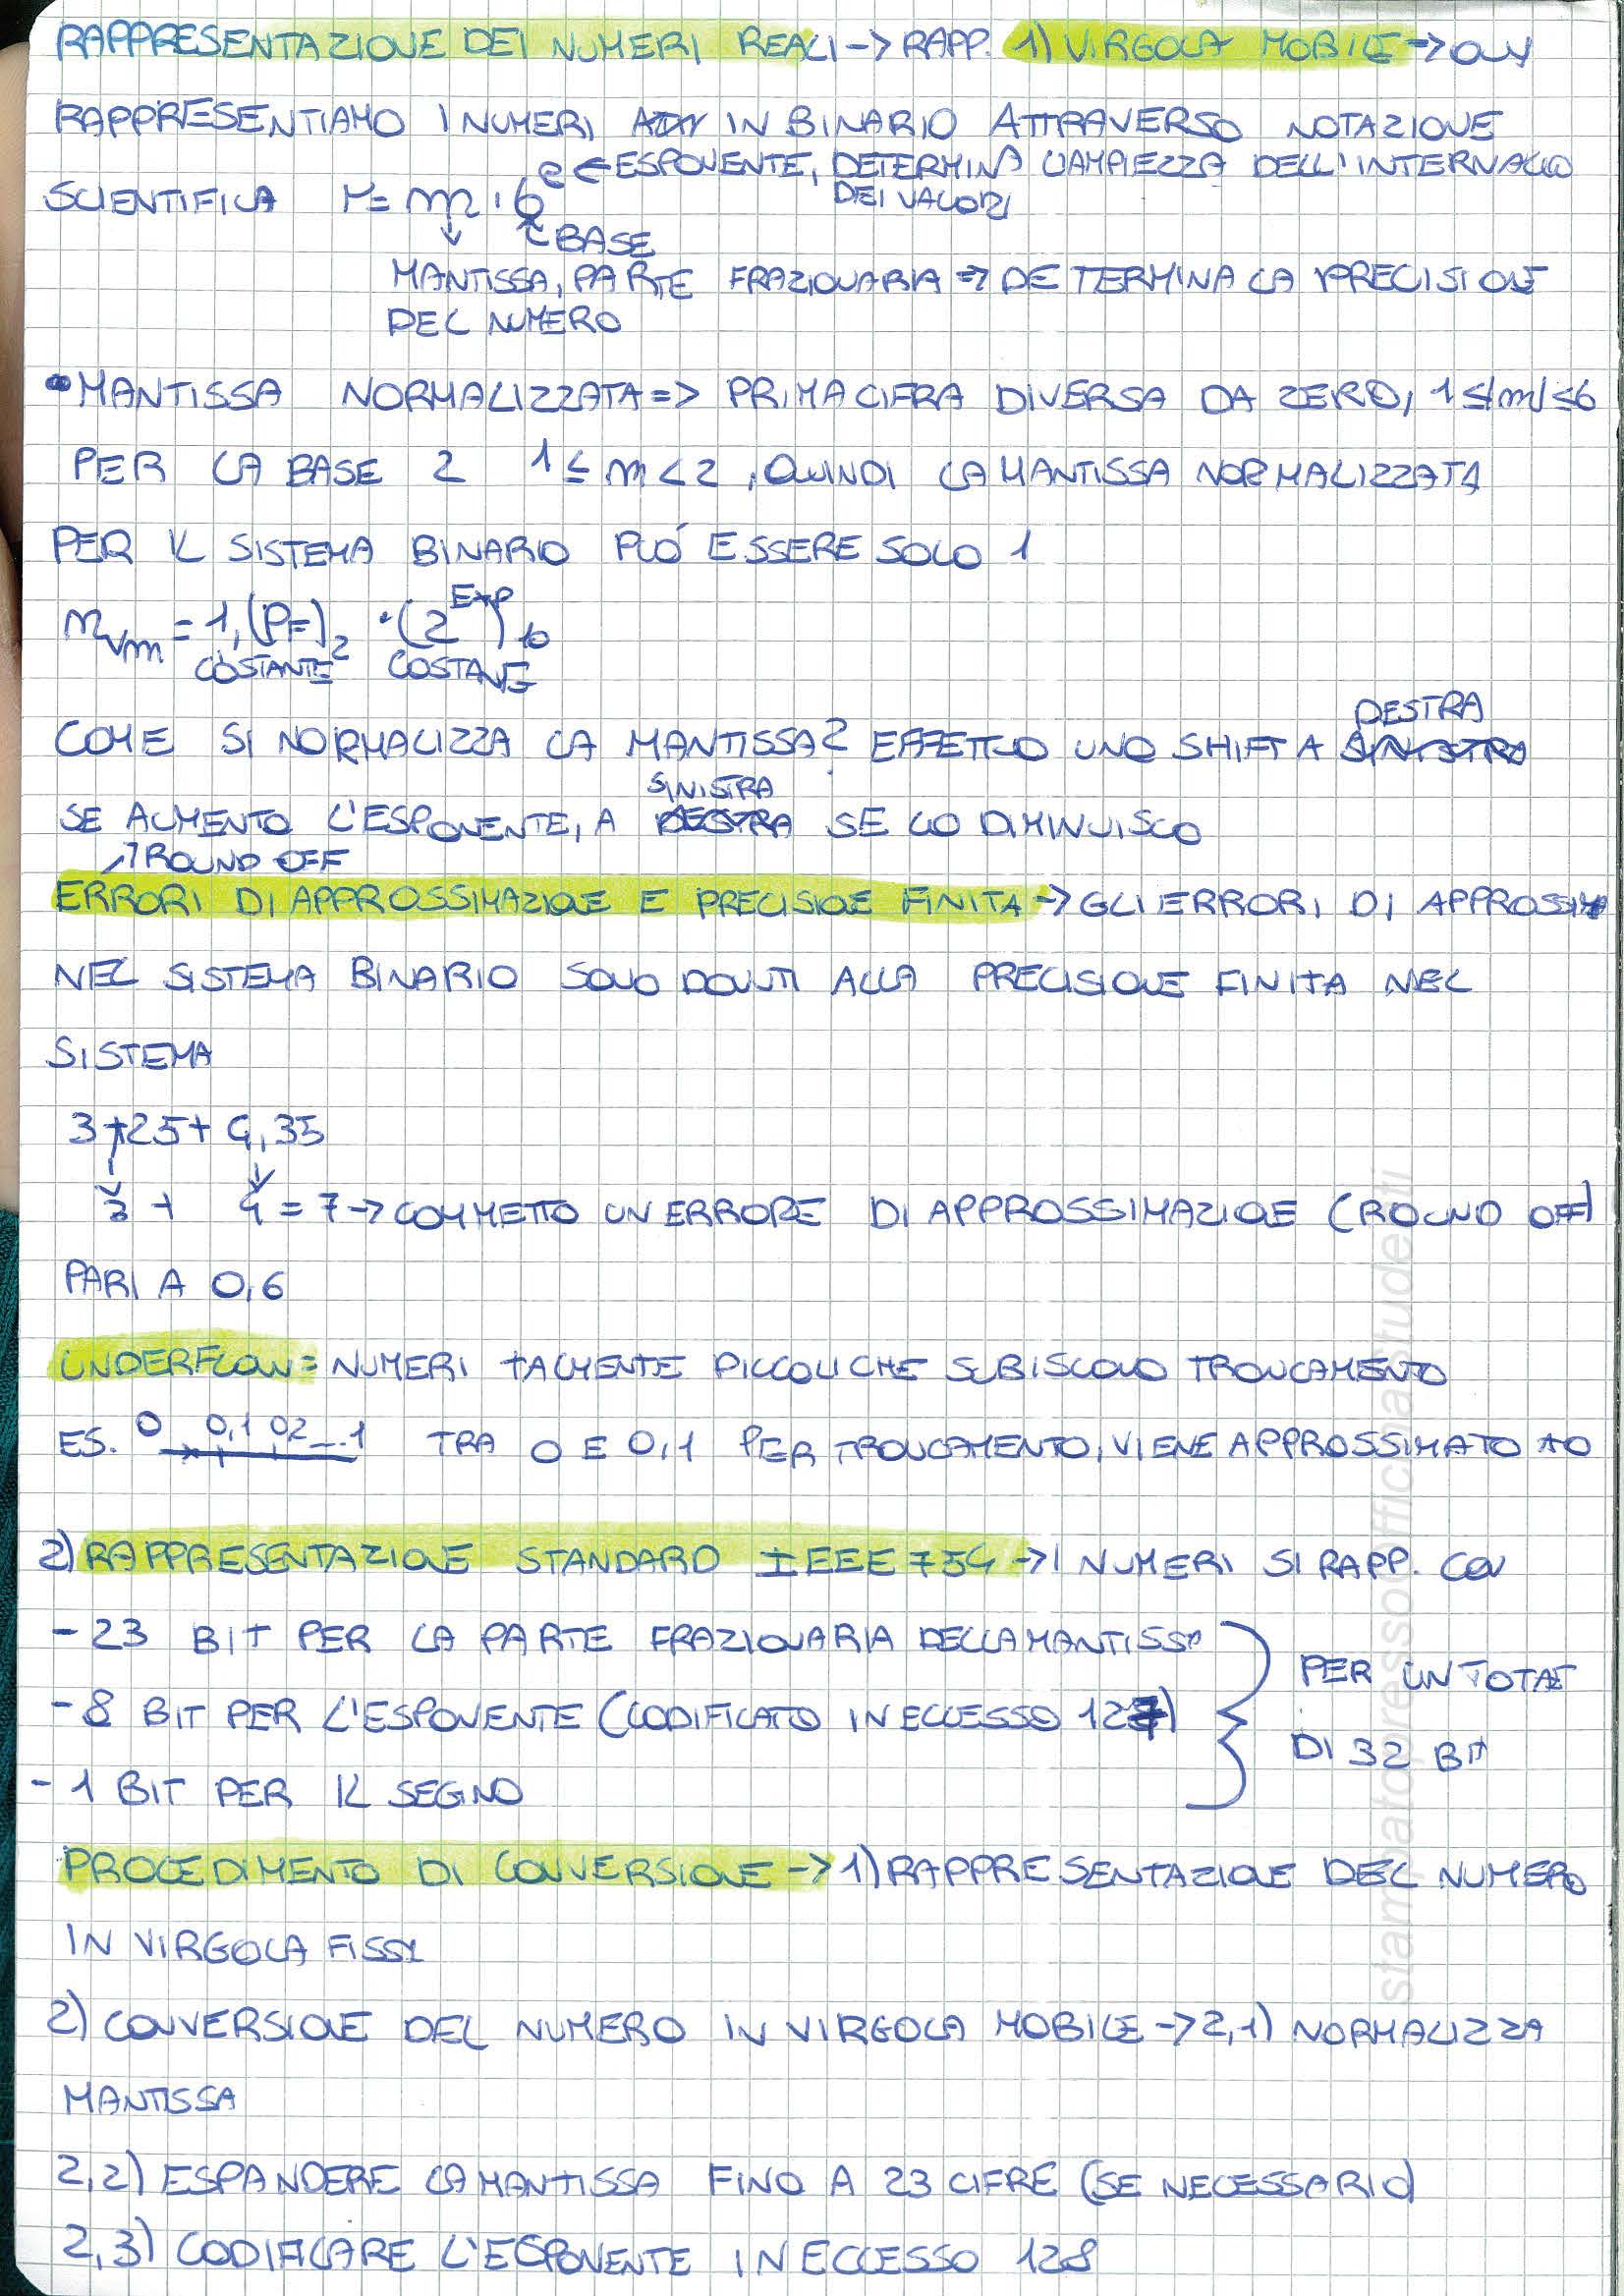 RAPPRESENTAZIONE DEI NUMERI REALI -> RAPP. 1) VIRGOLA MOBILE ->
RAPPRESENTIAMO I NUMERI IN BINARIO ATTRAVERSO NOTAZIONE
e <- ESPONENTE, DETERMINA L'AMPIEZZA DELL'INTERVALLO
DEI VALORI
SCIENTIFICA r = m · b
BASE
MANTISSA, PARTE FRAZIONARIA => DETERMINA LA PRECISIONE
DEL NUMERO
• MANTISSA NORMALIZZATA => PRIMA CIFRA DIVERSA DA ZERO, 1 ≤ |m| ≤ b
PER LA BASE 2 1 ≤ m < 2, QUINDI LA MANTISSA NORMALIZZATA
PER IL SISTEMA BINARIO PUÓ ESSERE SOLO 1
n_vm = 1,(PF)_2 · (2^Exp)_10
COSTANTE COSTANTE
DESTRA
COME SI NORMALIZZA LA MANTISSA? EFFETTUO UNO SHIFT A SINISTRA
SINISTRA
SE AUMENTO L'ESPONENTE, A DESTRA SE LO DIMINUISCO
ROUND OFF
ERRORI DI APPROSSIMAZIONE E PRECISIONE FINITA -> GLI ERRORI DI APPROSSIM
NEL SISTEMA BINARIO SONO DOVUTI ALLA PRECISIONE FINITA NEL
SISTEMA
3,25 + 4,35
3 + 4 = 7 -> COMMETTO UN ERRORE DI APPROSSIMAZIONE (ROUND OFF)
PARI A 0,6
UNDERFLOW = NUMERI TALMENTE PICCOLI CHE SUBISCONO TRONCAMENTO
ES. 0 0,1 0,2 ... 1 TRA 0 E 0,1 PER TRONCAMENTO, VIENE APPROSSIMATO A 0
2) RAPPRESENTAZIONE STANDARD IEEE 754 -> I NUMERI SI RAPP. CON
- 23 BIT PER LA PARTE FRAZIONARIA DELLA MANTISSA
- 8 BIT PER L'ESPONENTE (CODIFICATO IN ECCESSO 127)
- 1 BIT PER IL SEGNO
PER UN TOTALE
DI 32 BIT
PROCEDIMENTO DI CONVERSIONE -> 1) RAPPRESENTAZIONE DEL NUMERO
IN VIRGOLA FISSA
2) CONVERSIONE DEL NUMERO IN VIRGOLA MOBILE -> 2,1) NORMALIZZA
MANTISSA
2,2) ESPANDERE LA MANTISSA FINO A 23 CIFRE (SE NECESSARIO)
2,3) CODIFICARE L'ESPONENTE IN ECCESSO 128
stampatopressoofficinaStudenti